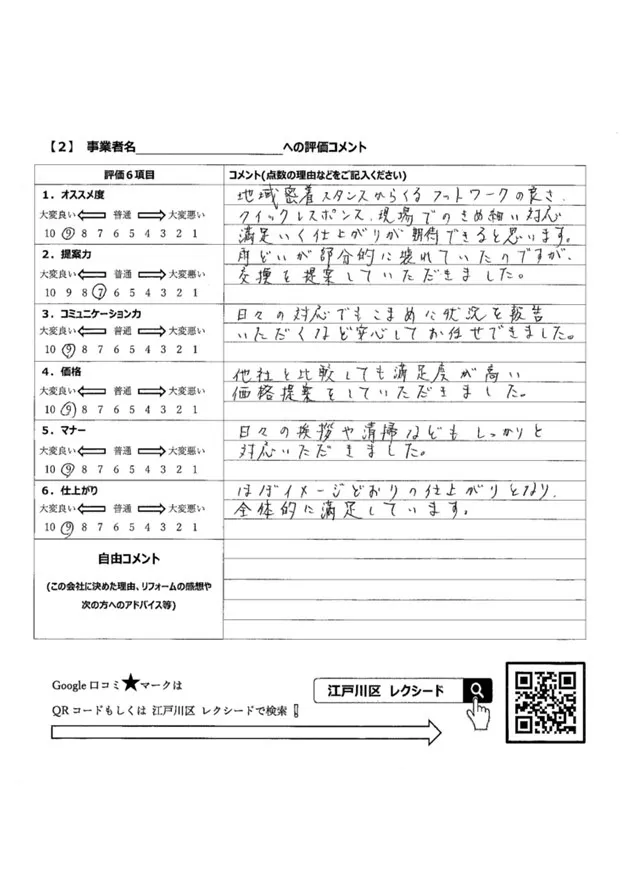 【2】 事業者名　への評価コメント
評価6項目
コメント(点数の理由などをご記入ください)
1. オススメ度
大変良い 普通 大変悪い
10 9 8 7 6 5 4 3 2 1
地域密着スタンスからくるフットワークの良さ、
クイックレスポンス、現場でのきめ細い対応
満足いく仕上がりが期待できると思います。
2. 提案力
大変良い 普通 大変悪い
10 9 8 7 6 5 4 3 2 1
雨どいが部分的に壊れていたのですが、
交換を提案していただきました。
3. コミュニケーション力
大変良い 普通 大変悪い
10 9 8 7 6 5 4 3 2 1
日々の対応でもこまめに状況を報告
いただくなど安心してお任せできました。
4. 価格
大変良い 普通 大変悪い
10 9 8 7 6 5 4 3 2 1
他社と比較しても満足度が高い
価格提案をしていただきました。
5. マナー
大変良い 普通 大変悪い
10 9 8 7 6 5 4 3 2 1
日々の挨拶や清掃などもしっかりと
対応いただきました。
6. 仕上がり
大変良い 普通 大変悪い
10 9 8 7 6 5 4 3 2 1
ほぼイメージどおりの仕上がりとなり、
全体的に満足しています。
自由コメント
(この会社に決めた理由、リフォームの感想や
次の方へのアドバイス等)
Google 口コミ★マークは
QRコードもしくは 江戸川区 レクシードで検索!
江戸川区 レクシード